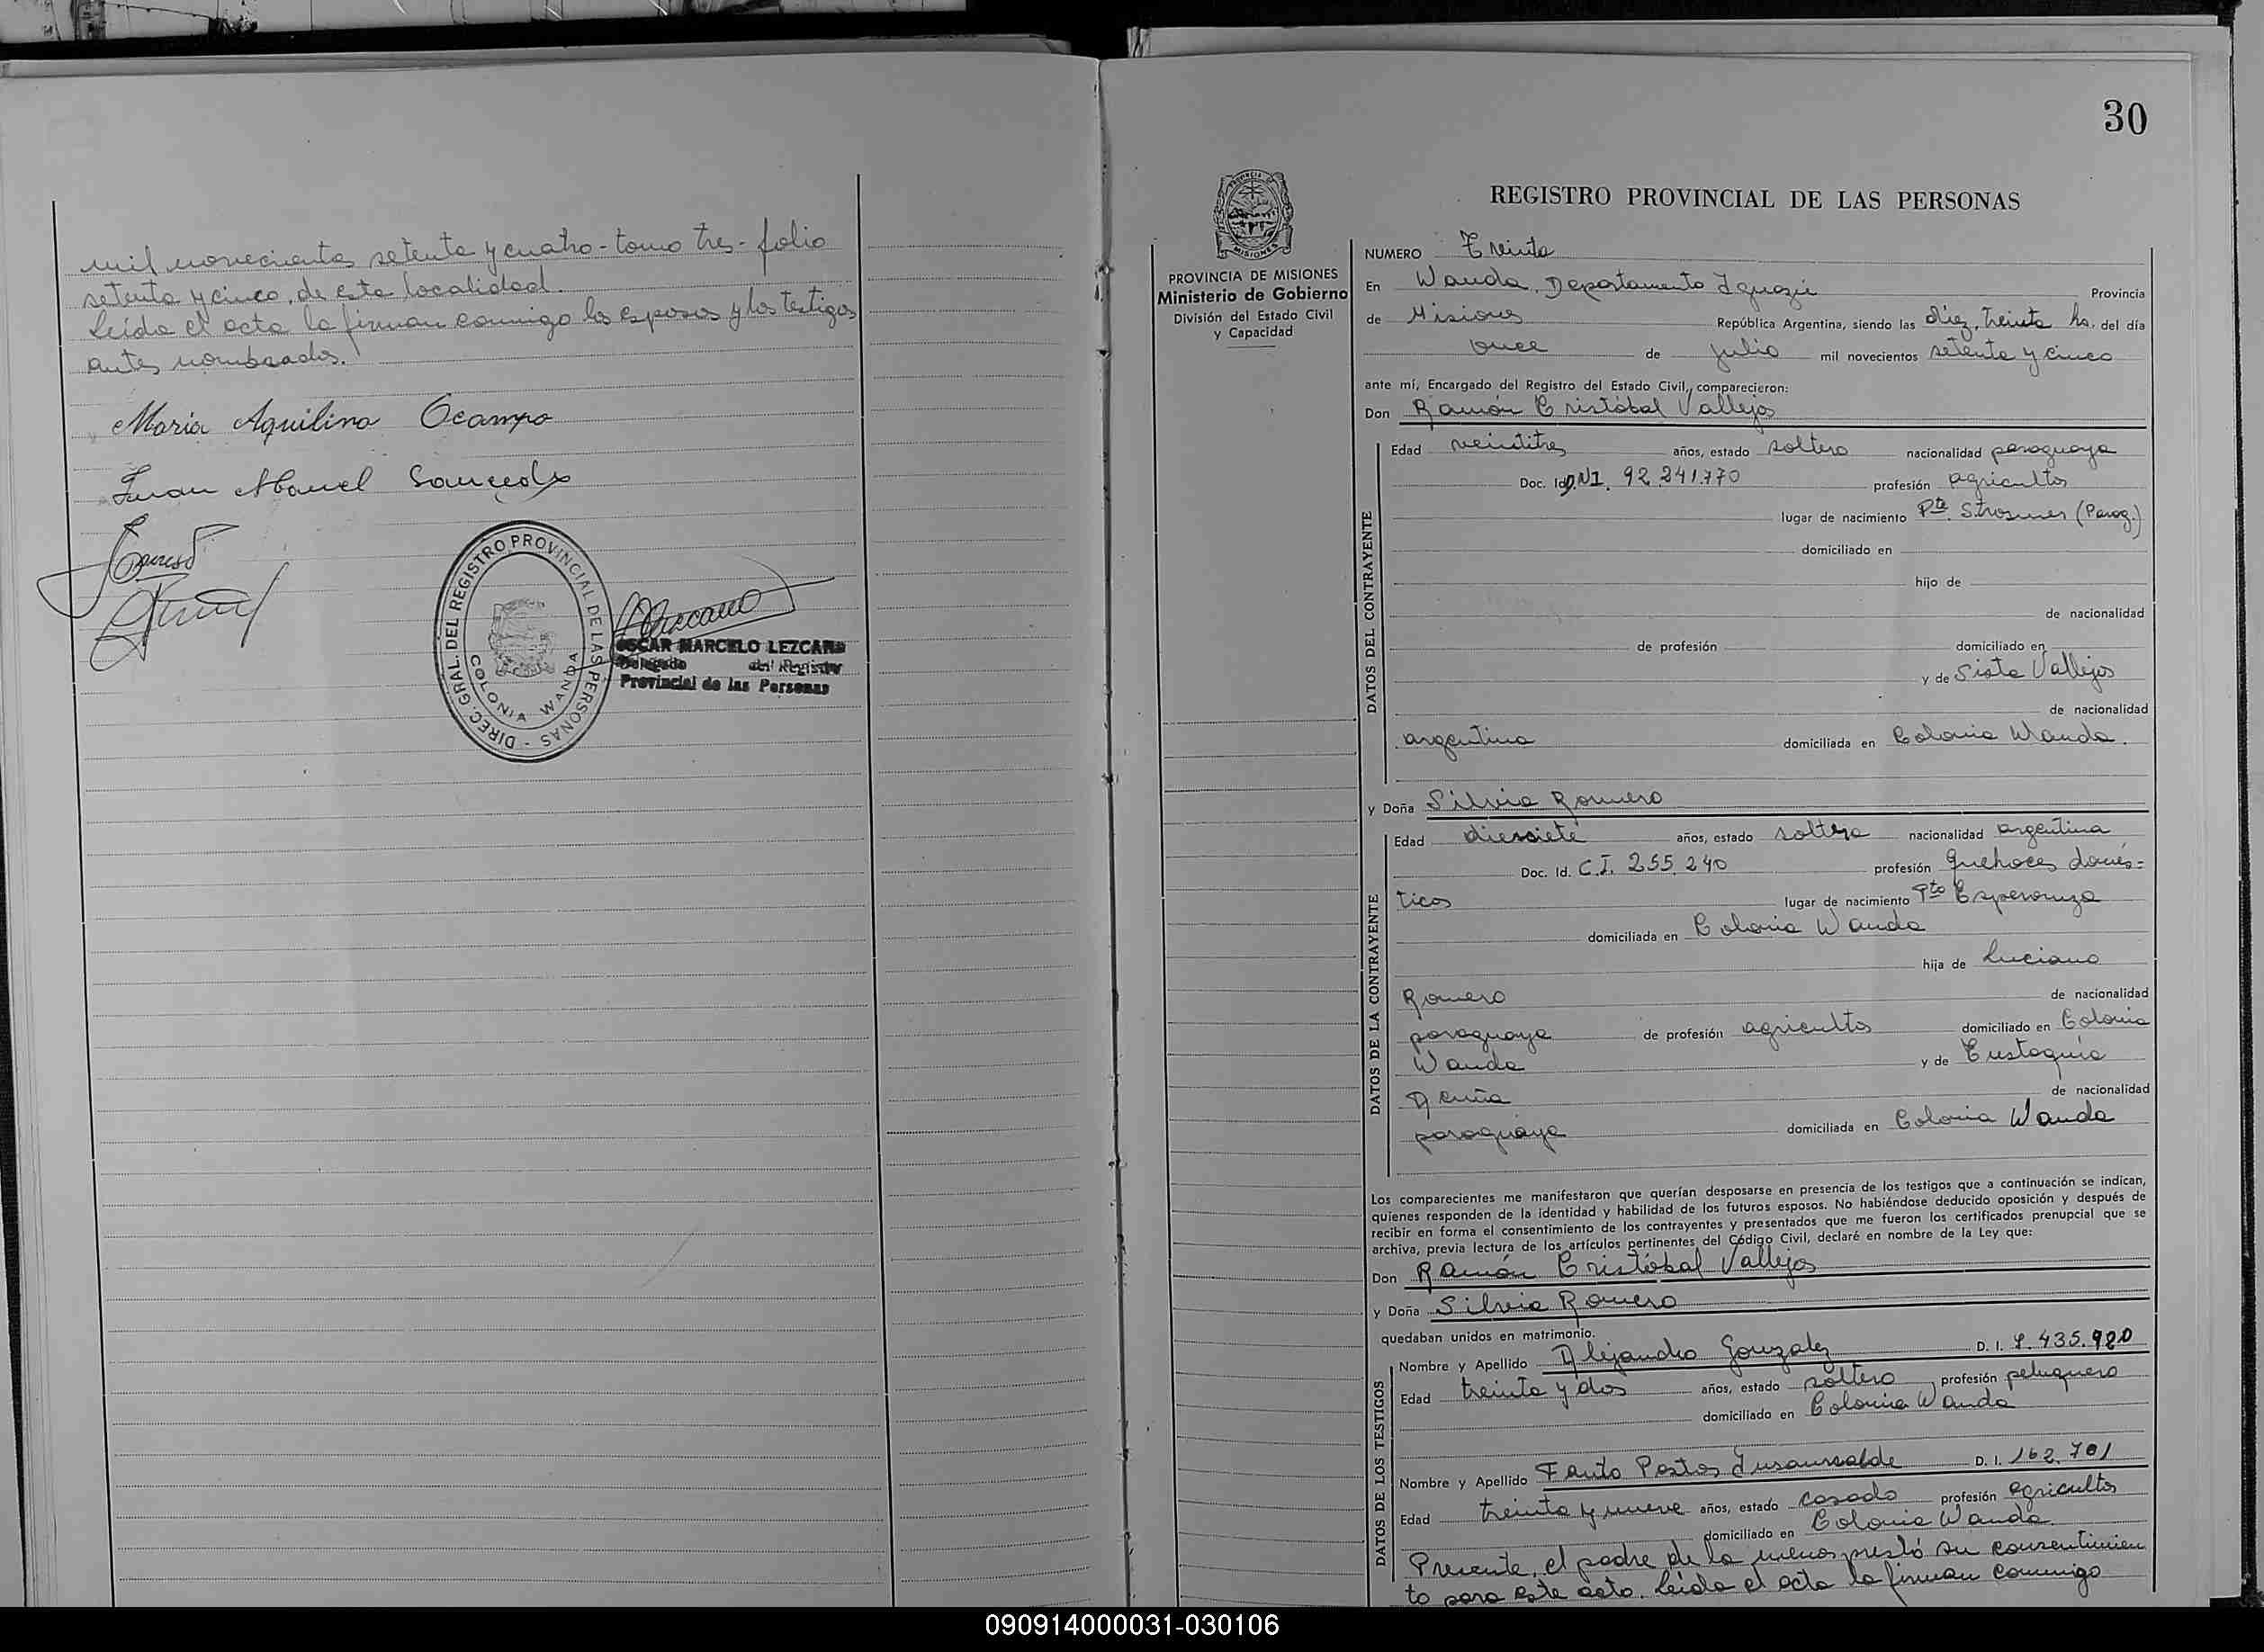 mil novecientos setenta y cuatro - tomo tres - folio
setenta y cinco, de esta localidad.
Leída el acta la firman conmigo los esposos y los testigos
antes nombrados.
Maria Aquilina Ocampo
Juan Manuel
DIREC. GRAL. DEL REGISTRO PROVINCIAL DE LAS PERSONAS -
COLONIA WANDA
OSCAR MARCELO LEZCANO
Delegado del Registro
Provincial de las Personas
30
PROVINCIA DE MISIONES
PROVINCIA DE MISIONES
Ministerio de Gobierno
División del Estado Civil
y Capacidad
REGISTRO PROVINCIAL DE LAS PERSONAS
NUMERO Treinta
En Wanda, Departamento Iguazú Provincia
de Misiones República Argentina, siendo las diez, treinta hs. del día
once de julio mil novecientos setenta y cinco
ante mí, Encargado del Registro del Estado Civil, comparecieron:
Don Ramón Cristóbal Vallejos
DATOS DEL CONTRAYENTE
Edad veintitres años, estado soltero nacionalidad paraguaya
Doc. Id. D.N.I. 92.241.770 profesión agricultor
lugar de nacimiento Pte. Strosner (Parag.)
domiciliado en
hijo de
de nacionalidad
de profesión domiciliado en
y de Sixta Vallejos
de nacionalidad
argentina domiciliada en Colonia Wanda.
y Doña Silvia Romero
DATOS DE LA CONTRAYENTE
Edad diesciete años, estado soltera nacionalidad argentina
Doc. Id. C.I. 255.240 profesión quehaces domés-
ticos lugar de nacimiento Pto Esperanza
domiciliada en Colonia Wanda
hija de Luciano
Romero de nacionalidad
paraguaya de profesión agricultor domiciliado en Colonia
Wanda y de Eustaquia
de nacionalidad
paraguaya domiciliada en Colonia Wanda
Los comparecientes me manifestaron que querían desposarse en presencia de los testigos que a continuación se indican,
quienes responden de la identidad y habilidad de los futuros esposos. No habiéndose deducido oposición y después de
recibir en forma el consentimiento de los contrayentes y presentados que me fueron los certificados prenupcial que se
archiva, previa lectura de los artículos pertinentes del Código Civil, declaré en nombre de la Ley que:
Don Ramón Cristóbal Vallejos
y Doña Silvia Romero
quedaban unidos en matrimonio.
DATOS DE LOS TESTIGOS
Nombre y Apellido Alejandro Gonzalez D. I. 435.920
Edad treinta y dos años, estado soltero profesión peluquero
domiciliado en Colonia Wanda
Nombre y Apellido Insaurralde D. I. 162.701
Edad treinta y nueve años, estado casado profesión agricultor
domiciliado en Colonia Wanda
Presente, el padre de la menor, prestó su consentimien
to para este acto. Leída el acta la firman conmigo
090914000031-030106